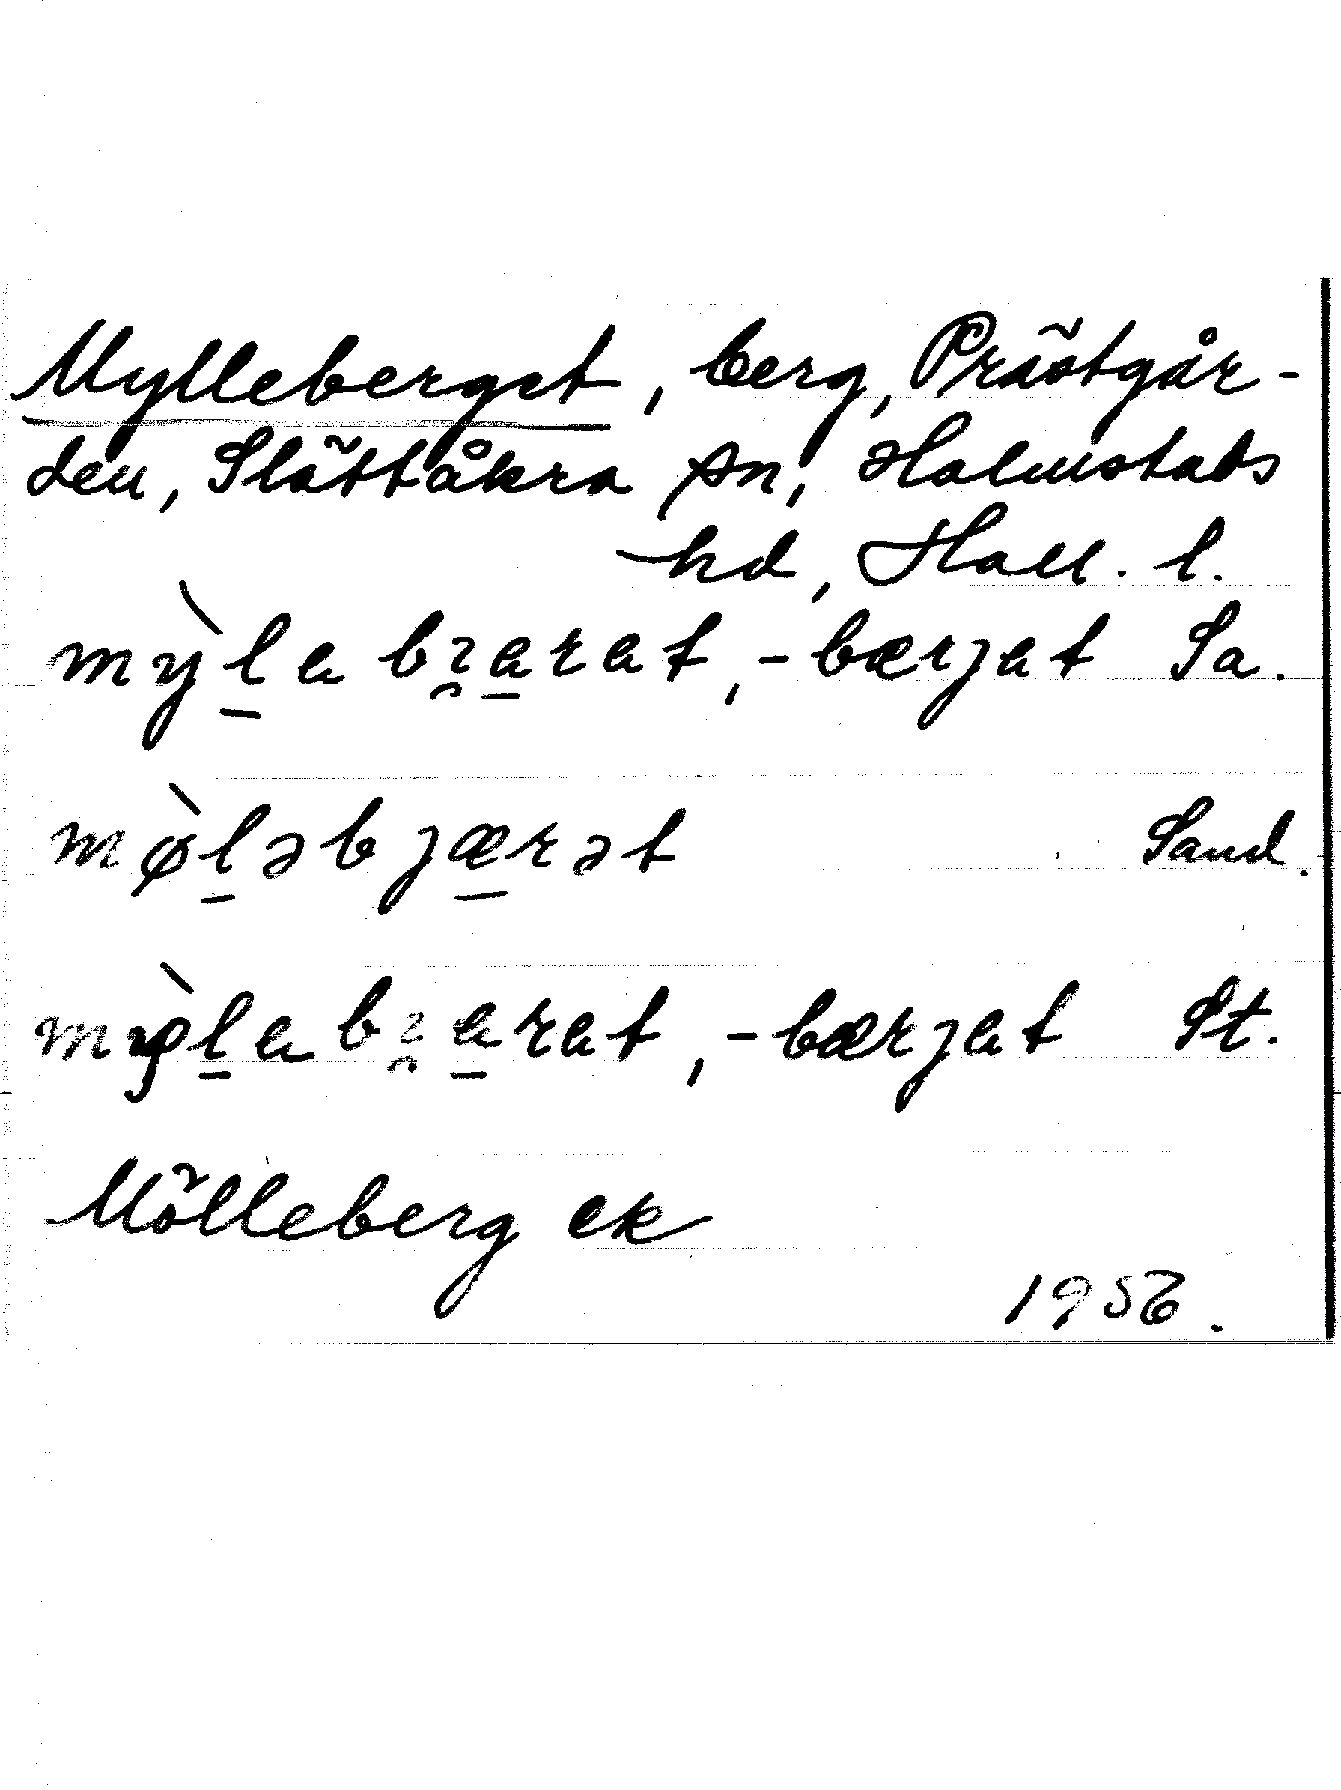 Mylleberget, berg, Prästgår-
den, Slättåkra sn, Halmstads
hd, Hall. l.
mỳl̲a bı̯a̲rat, -bærjat Sa.
mø̀l̲əbjæ̲rət Sand.
mø̀l̲a bı̯a̲rat, -bærjat St.
Mölleberg ek
1956.